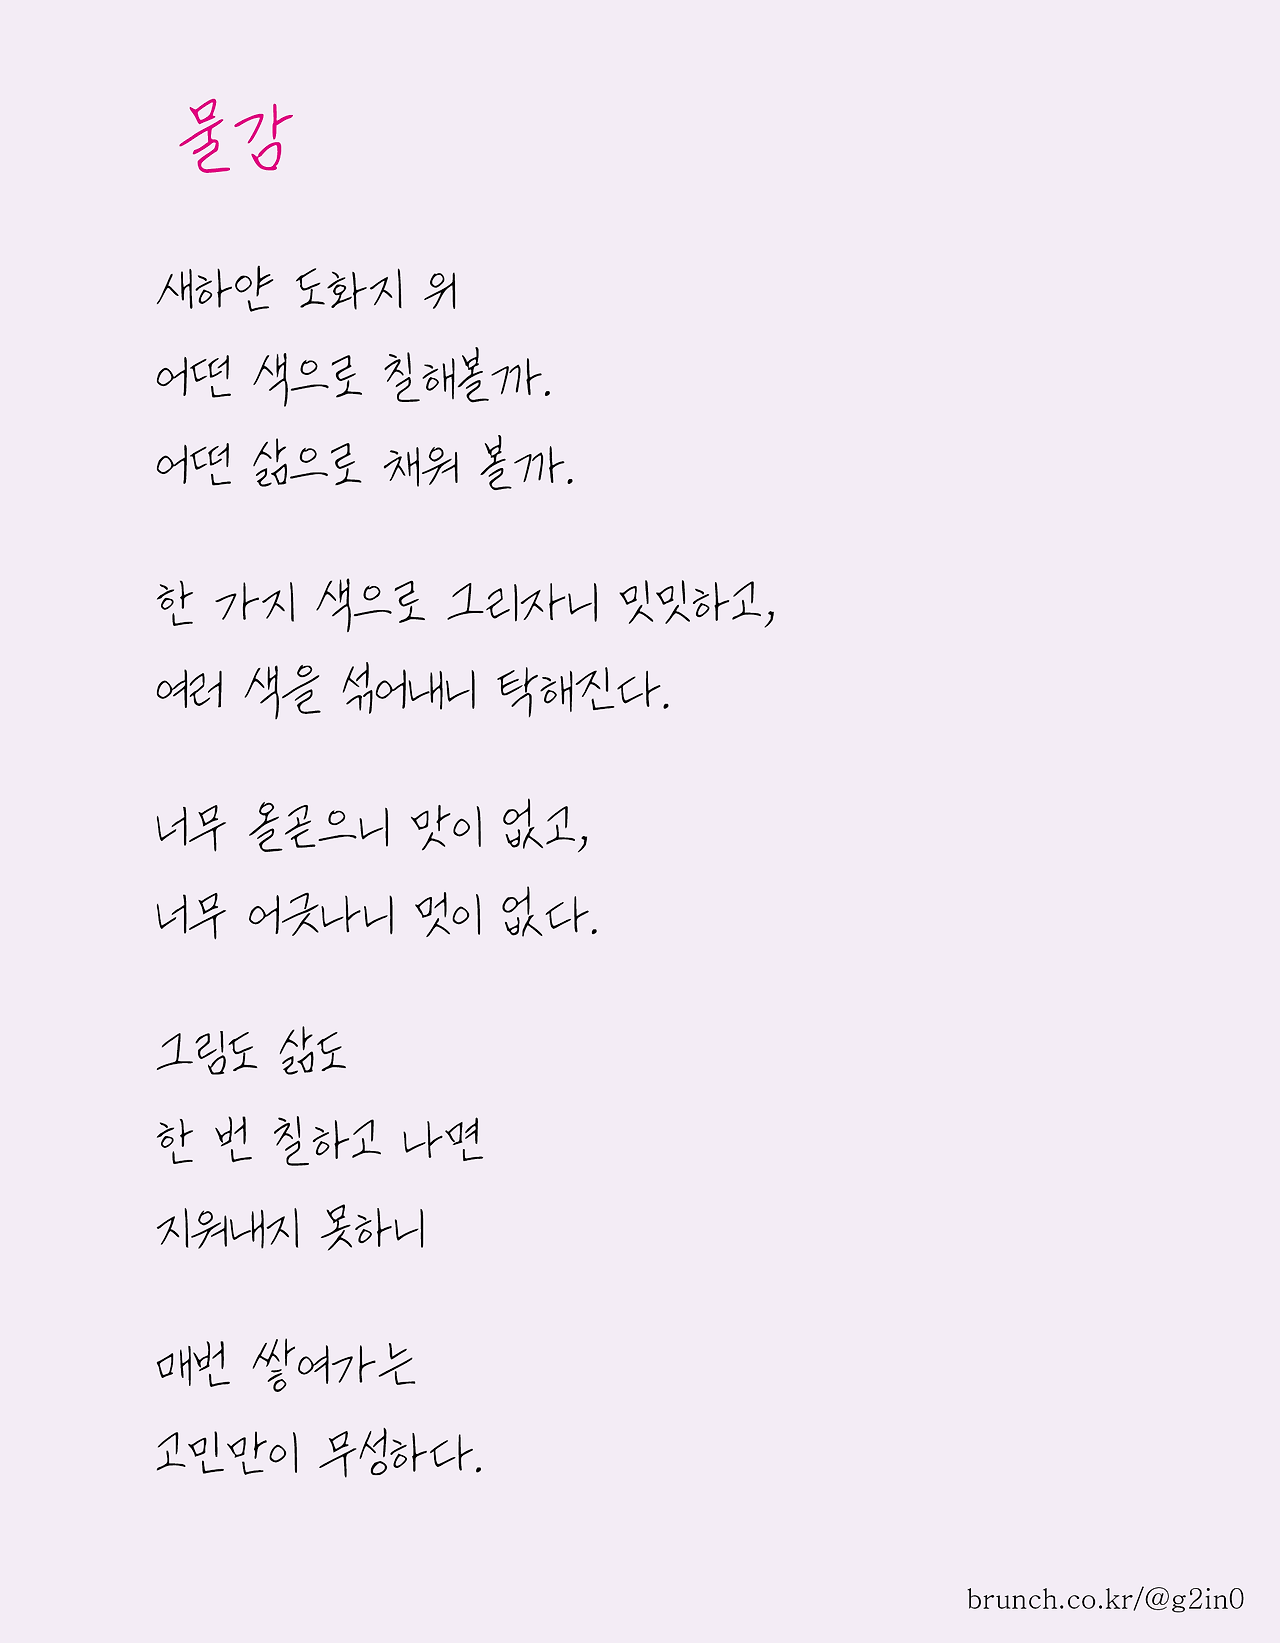 물감
새하얀 도화지 위
어떤 색으로 칠해볼까.
어떤 삶으로 채워 볼까.
한 가지 색으로 그리자니 밋밋하고,
여러 색을 섞어내니 탁해진다.
너무 올곧으니 맛이 없고,
너무 어긋나니 멋이 없다.
그림도 삶도
한 번 칠하고 나면
지워내지 못하니
매번 쌓여가는
고민만이 무성하다.
brunch.co.kr/@g2in0